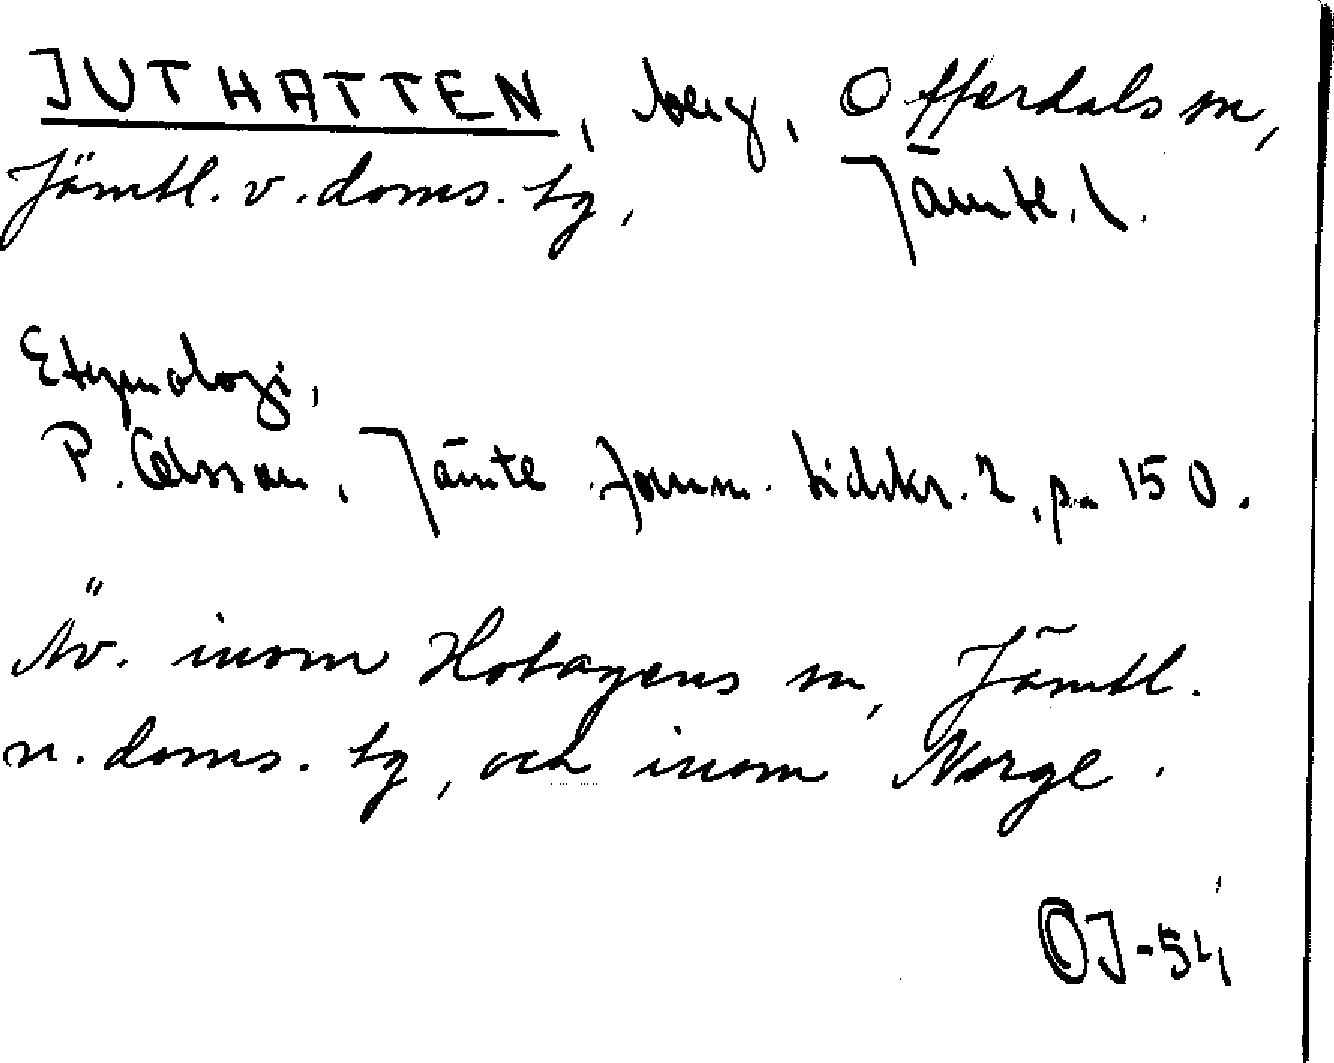 JUTHATTEN, berg, Offerdals sn,
Jämtl. v. doms. tg, Jämtl. l.
Etymologi,
P. Olsson, Jämtl. fornm. tidskr. 2, p. 150.
Äv. inom Hotagens sn, Jämtl.
n. doms. tg, och inom Norge.
OJ-54